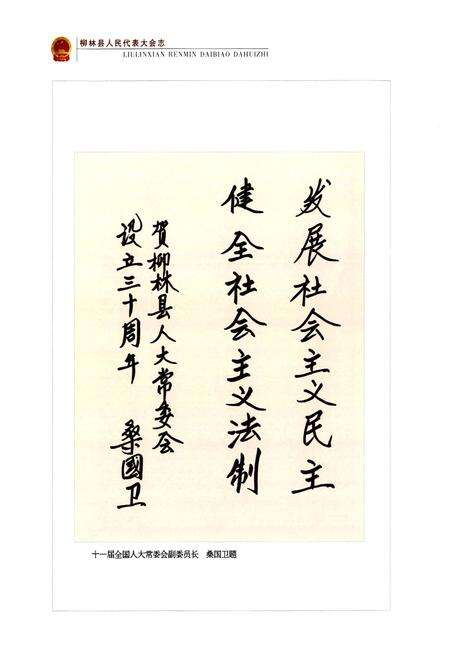 柳林县人民代表大会志
LIULINXIAN RENMIN DAIBIAO DAHUIZHI
发展社会主义民主
健全社会主义法制
贺柳林县人大常委会
设立三十周年 桑國卫
十一届全国人大常委会副委员长 桑国卫题